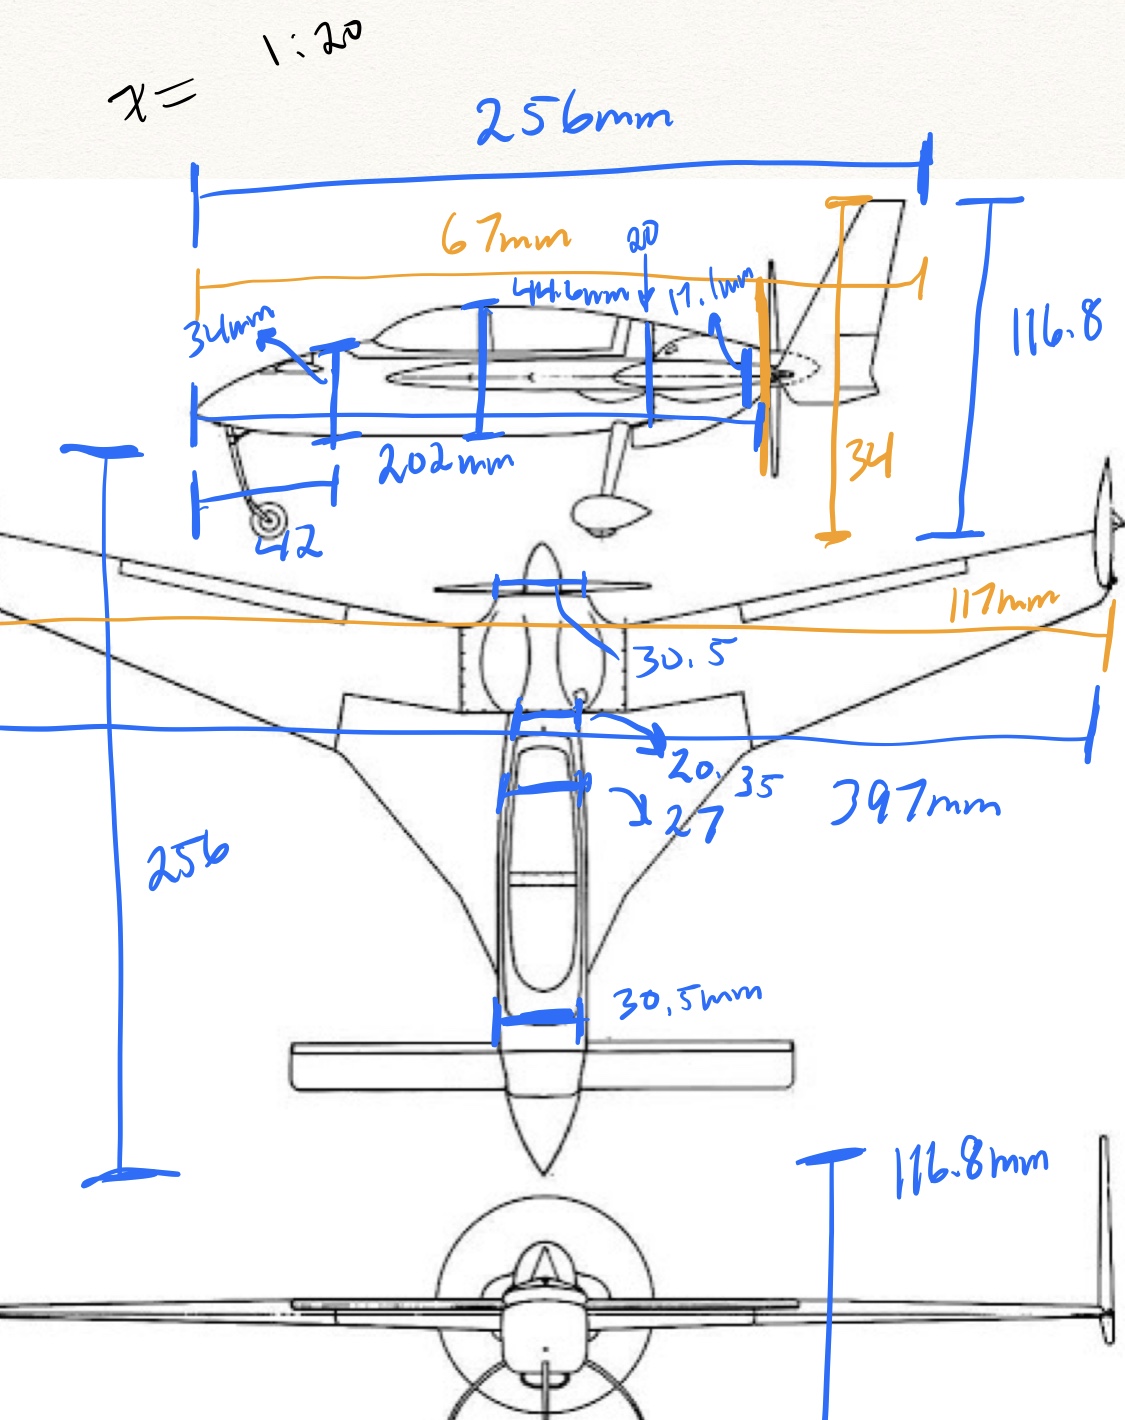 1:20
x=
256mm
67mm
20
44.6mm
17.1mm
34mm
116.8
34
202mm
42
117mm
30.5
20.35
27
397mm
256
30.5mm
116.8mm